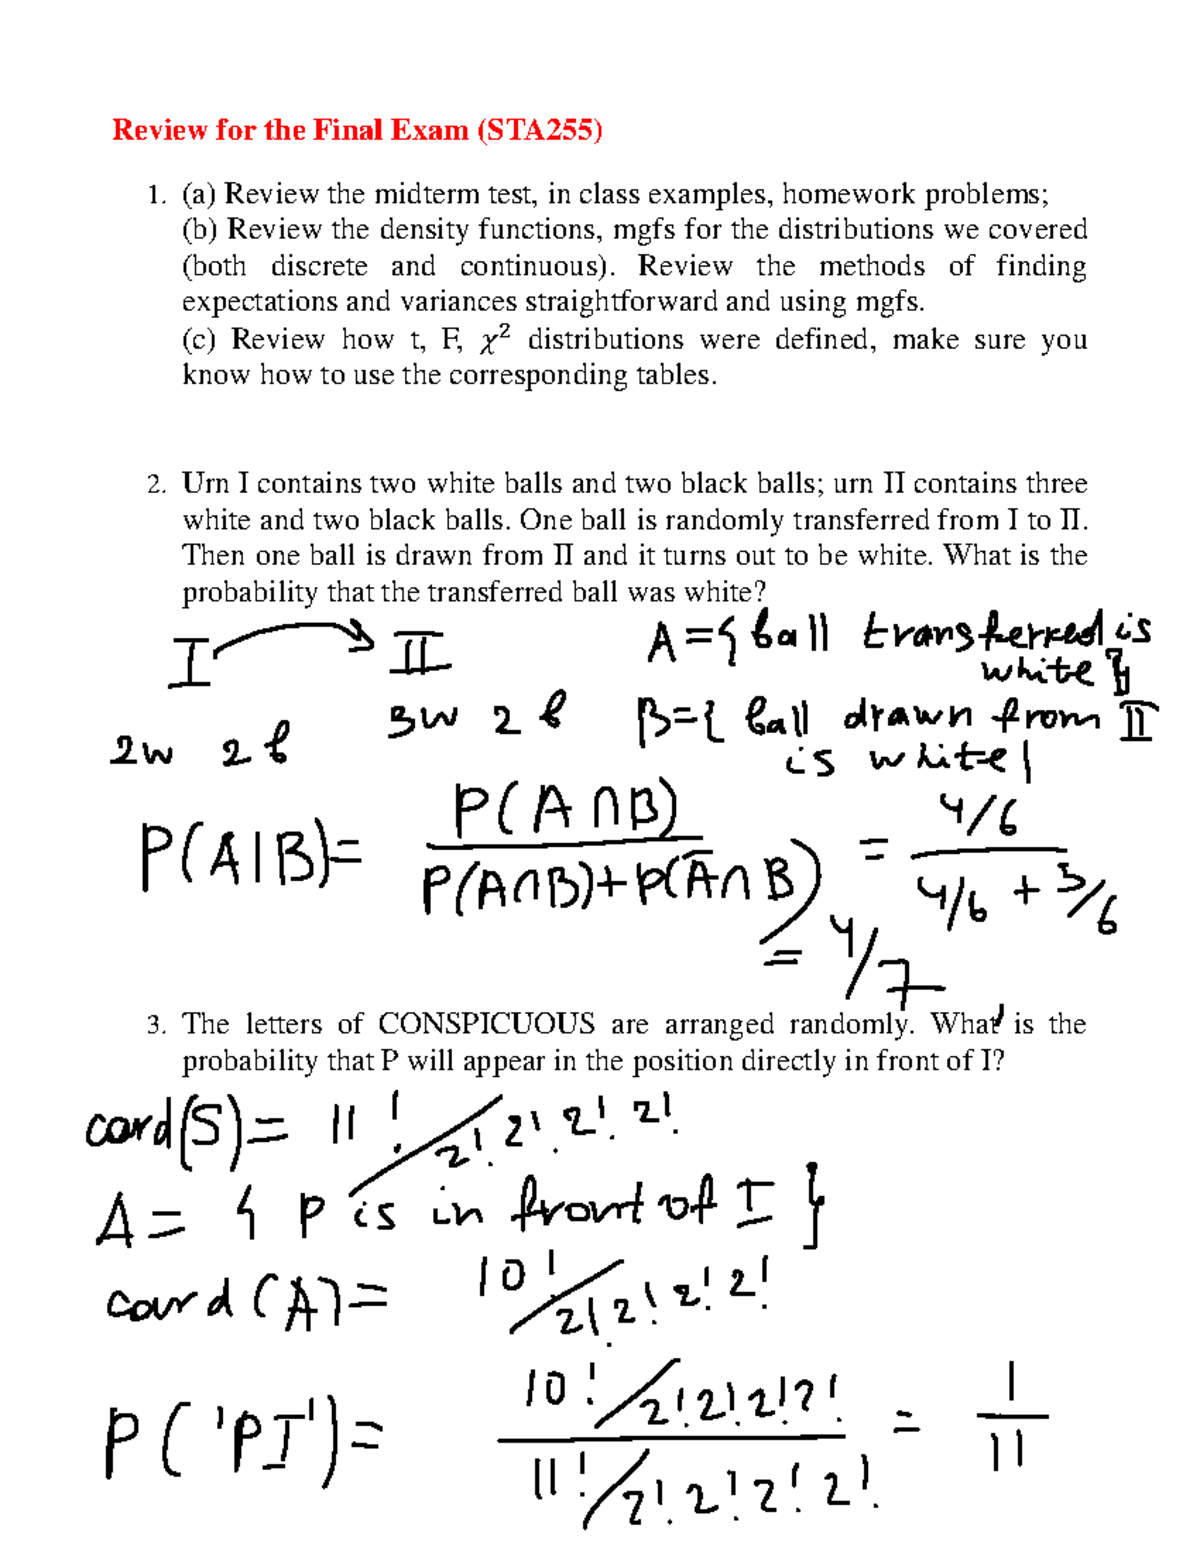 Review for the Final Exam (STA255)
1. (a) Review the midterm test, in class examples, homework problems;
(b) Review the density functions, mgfs for the distributions we covered
(both discrete and continuous). Review the methods of finding
expectations and variances straightforward and using mgfs.
(c) Review how t, F, χ² distributions were defined, make sure you
know how to use the corresponding tables.
2. Urn I contains two white balls and two black balls; urn II contains three
white and two black balls. One ball is randomly transferred from I to II.
Then one ball is drawn from II and it turns out to be white. What is the
probability that the transferred ball was white?
I II A={ ball transferred is
white }
2w 2b 3w 2b B={ ball drawn from II
is white}
P(A|B)= P(A∩B) / P(A∩B)+P(Ā∩B) = 4/6 / 4/6 + 3/6
= 4/7
3. The letters of CONSPICUOUS are arranged randomly. What is the
probability that P will appear in the position directly in front of I?
card(S)= 11! / 2! 2! 2! 2!
A = { P is in front of I }
card(A)= 10! / 2! 2! 2! 2!
P('PI')= 10!/2!2!2!2! / 11!/2!2!2!2! = 1/11